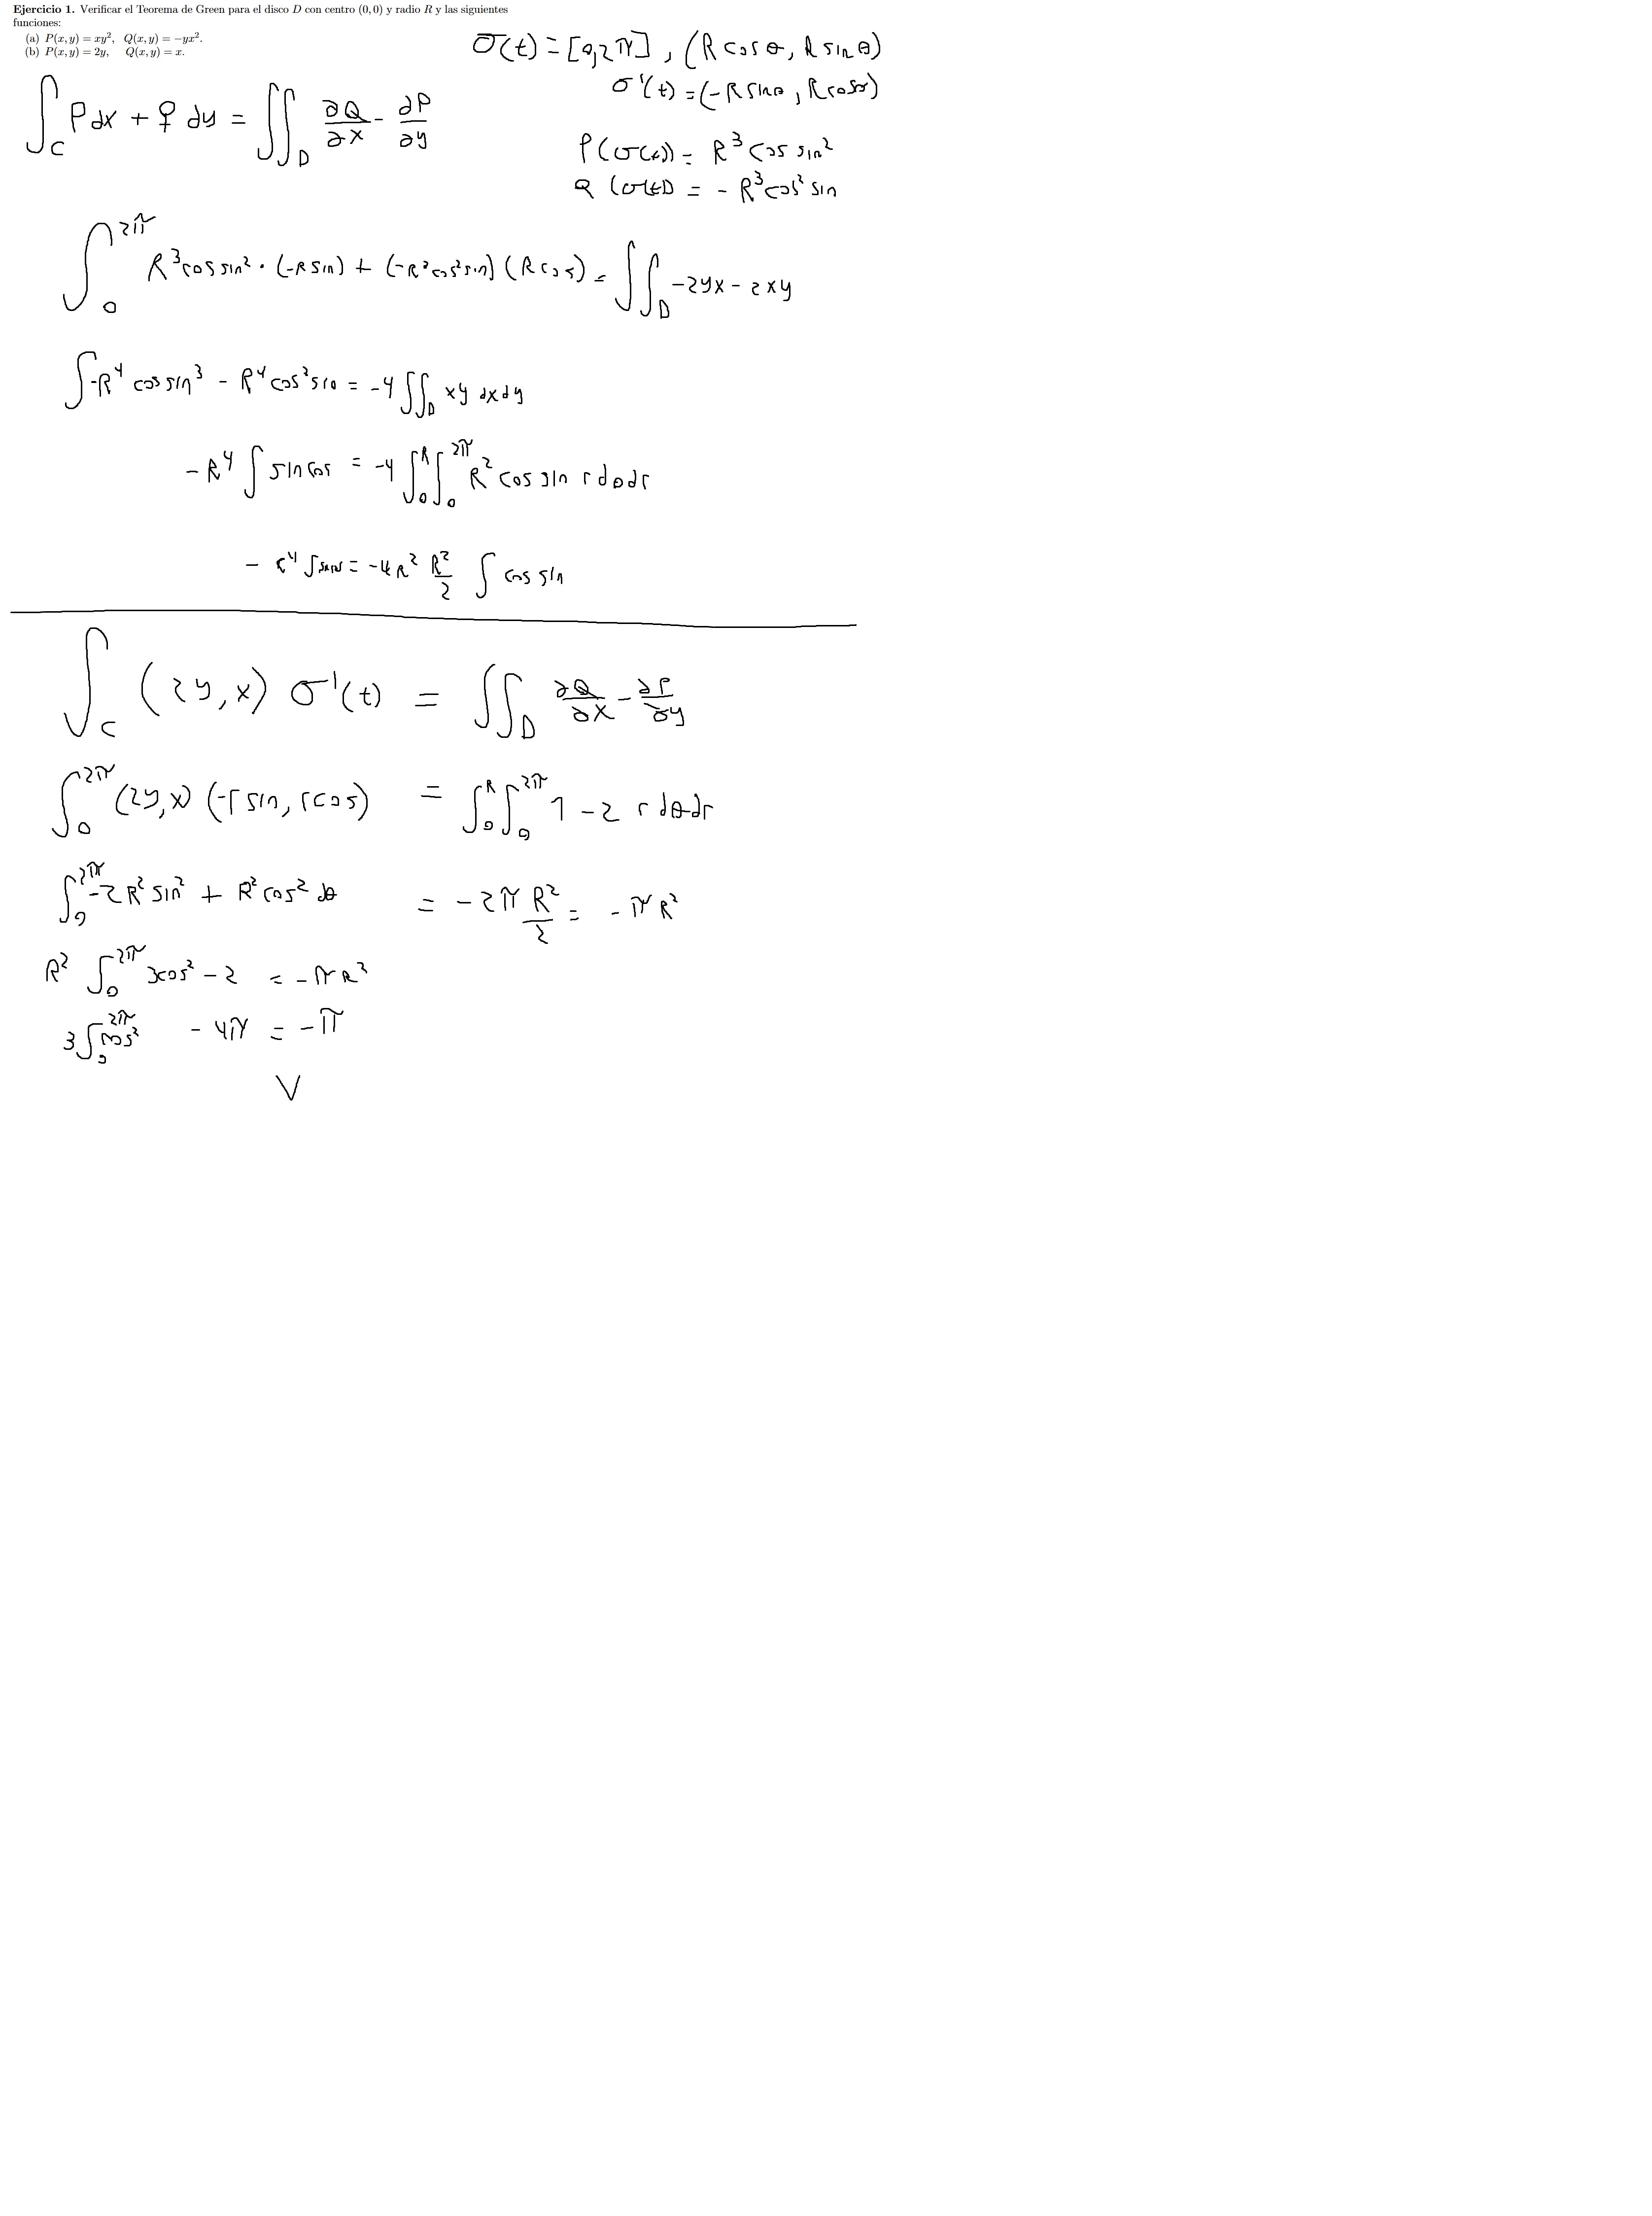 Ejercicio 1. Verificar el Teorema de Green para el disco D con centro (0,0) y radio R y las siguientes
funciones:
(a) P(x,y) = xy², Q(x,y) = −yx².
(b) P(x,y) = 2y, Q(x,y) = x.
σ(t) = [0,2π], (R cos θ, R sin θ)
σ'(t) = (-R sin θ, R cos θ)
∫_C P dx + Q dy = ∬_D ∂Q/∂x - ∂P/∂y
P(σ(t)) = R³ cos sin²
Q(σ(t)) = - R³ cos² sin
∫_0^2π R³ cos sin² · (-R sin) + (-R³ cos² sin) (R cos) = ∬_D -2yx - 2xy
∫ -R⁴ cos sin³ - R⁴ cos³ sin = -4 ∬_D xy dx dy
- R⁴ ∫ sin cos = -4 ∫_0^R ∫_0^2π R² cos sin r dθ dr
- R⁴ ∫ = -4 R² R²/2 ∫ cos sin
∫_C (2y, x) σ'(t) = ∬_D ∂Q/∂x - ∂P/∂y
∫_0^2π (2y, x) (-r sin, r cos) = ∫_0^R ∫_0^2π 1 - 2 r dθ dr
∫_0^2π -2R² sin² + R² cos² dθ = -2π R²/2 = - π R²
R² ∫_0^2π 3cos² - 2 = - π R²
3 ∫_0^2π cos² - 4π = - π
V